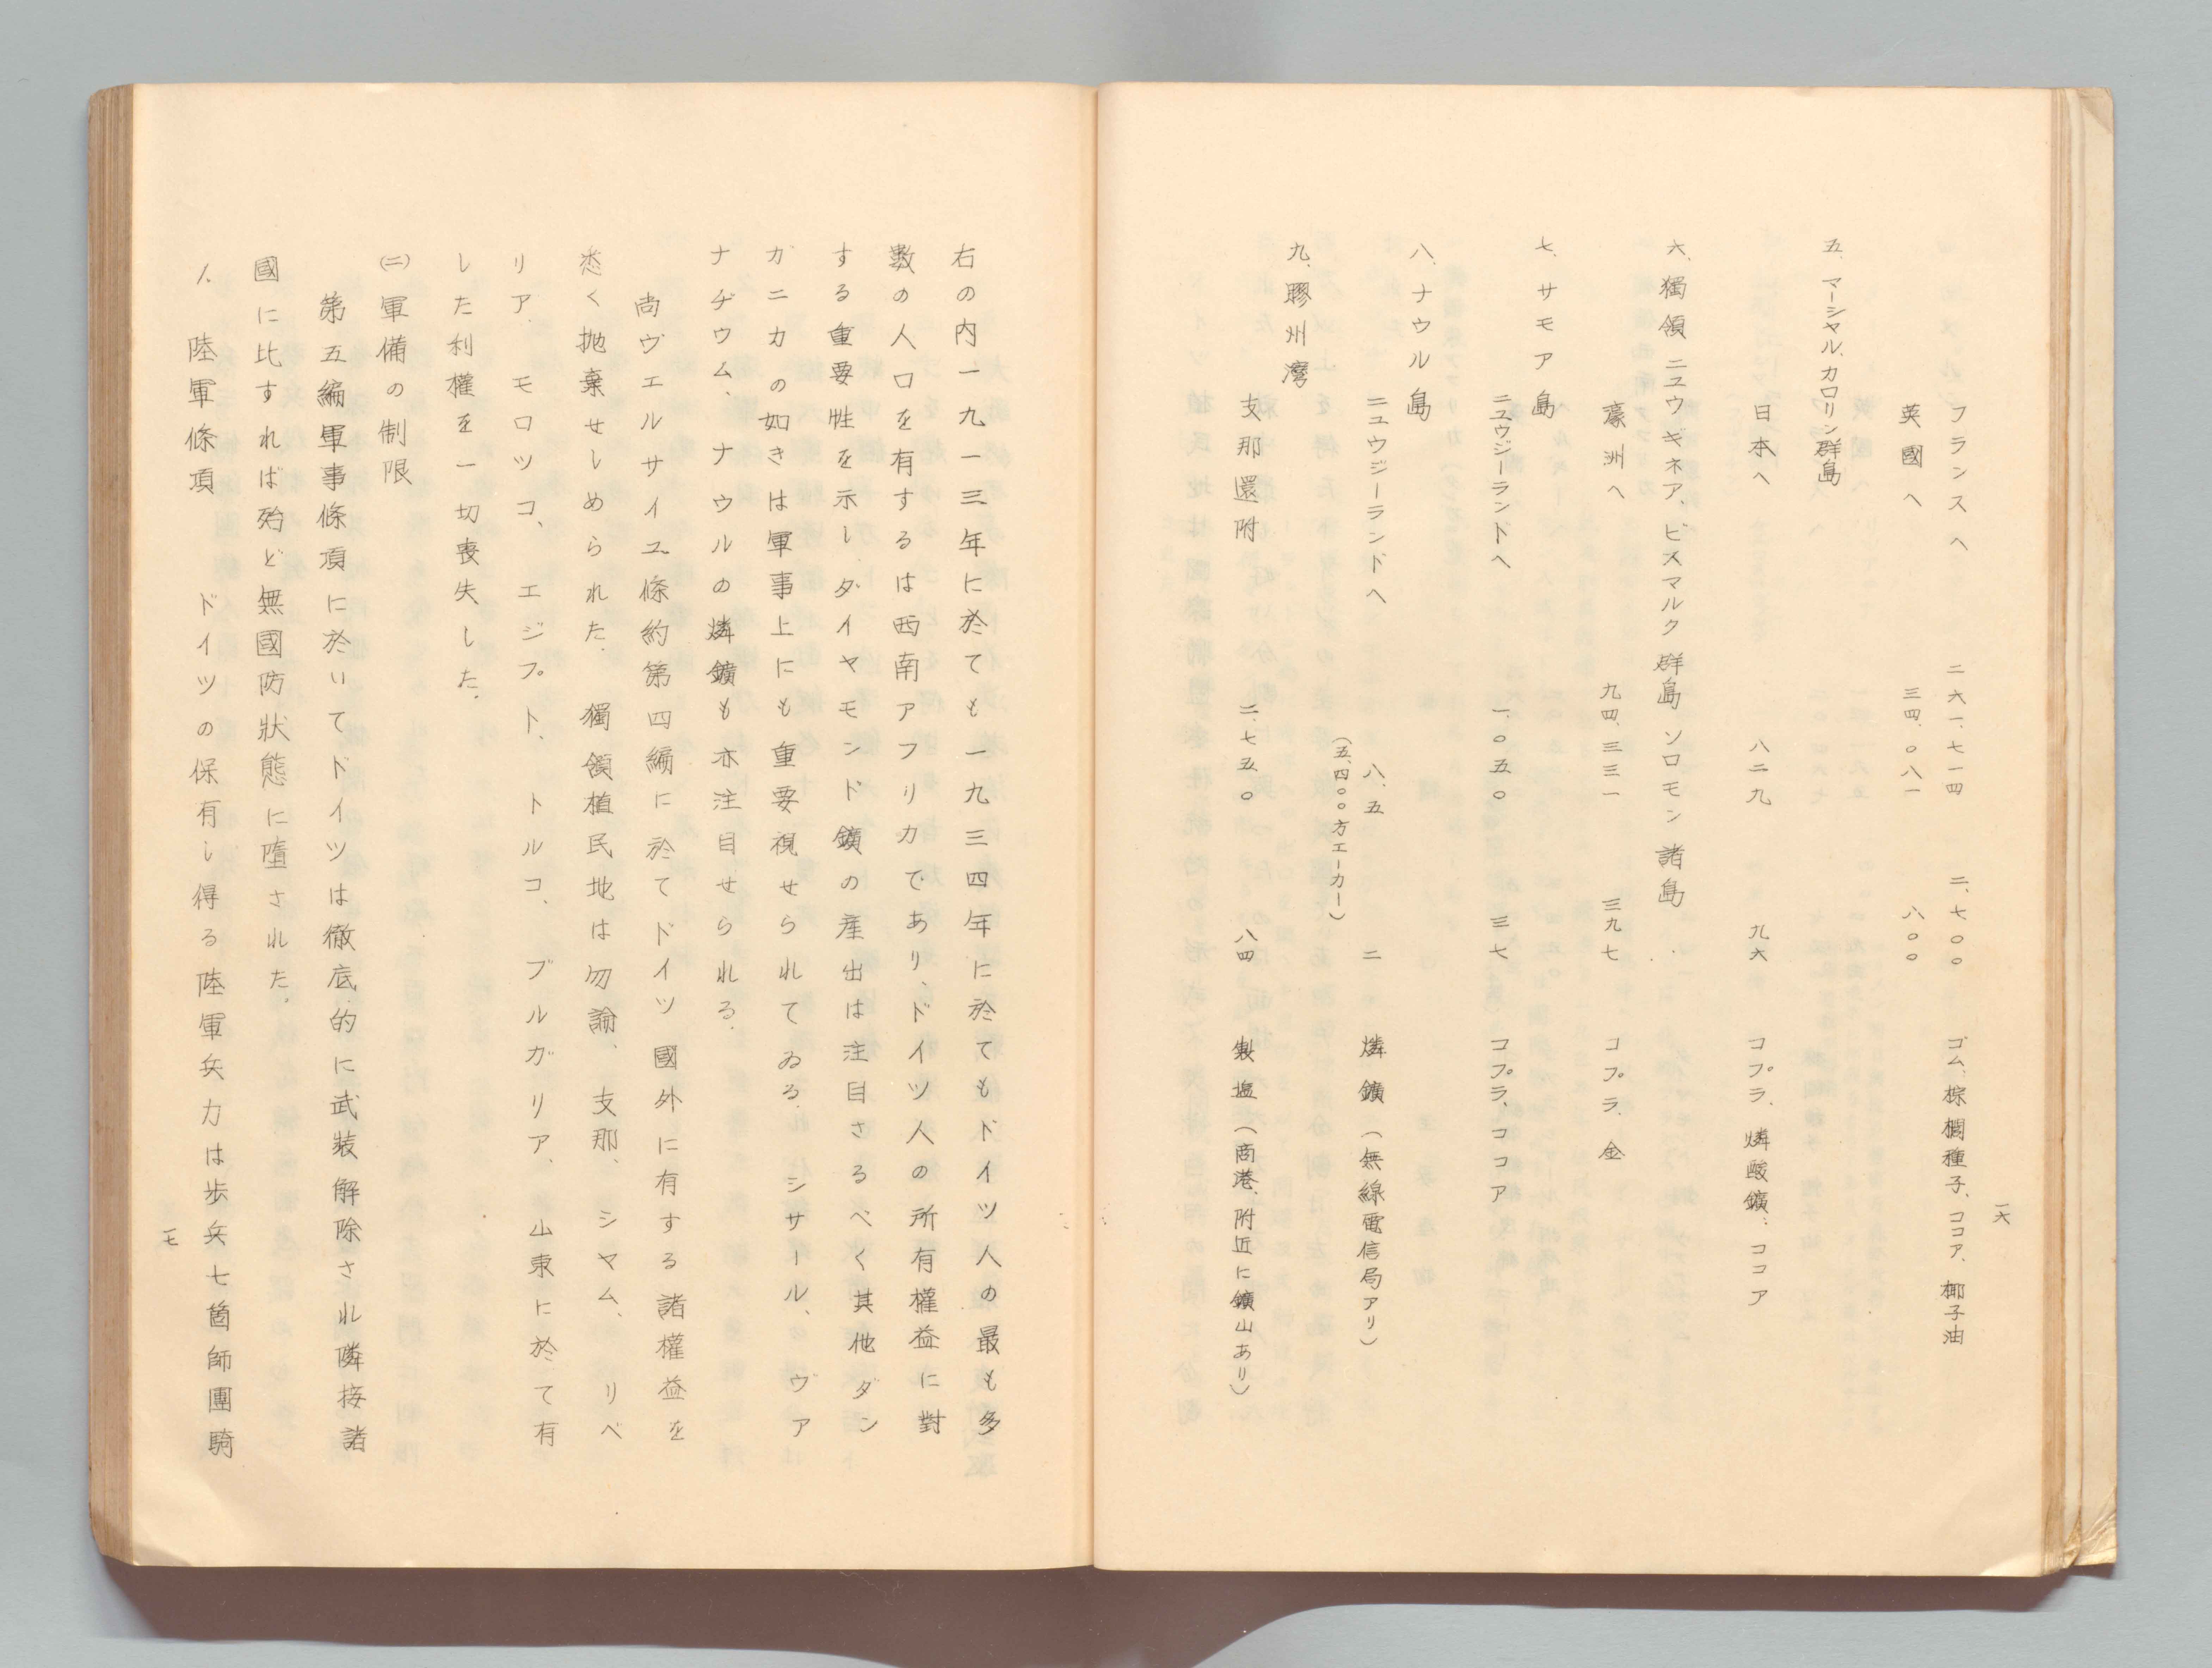 一六
フランスへ 二六一、七一四 二、七〇〇 ゴム、棕櫚種子、ココア、椰子油
英國へ 三四、〇八一 八〇〇
五、マーシャル、カロリン群島
日本へ 八二九 九六 コプラ、燐酸鑛、ココア
六、獨領ニユウギネア、ビスマルク群島 ソロモン諸島
濠洲へ 九四、三三一 三九七 コプラ、金
七、サモア島
ニユウジーランドへ 一、〇五〇 三七 コプラ、ココア
八、ナウル島
ニユウジーランドへ 八、五 二 燐鑛(無線電信局アリ)
(五、四〇〇方エーカー)
九、膠州灣
支那還附 二、七五〇 八四 製塩(商港、附近に鑛山あり)
右の内一九一三年に於ても一九三四年に於てもドイツ人の最も多
數の人口を有するは西南アフリカであり、ドイツ人の所有權益に對
する重要性を示し、ダイヤモンド鑛の産出は注目さるべく其他ダン
ガニカの如きは軍事上にも重要視せられてゐる、シサール、ヴア
ナヂウム、ナウルの燐鑛も亦注目せられる。
尚ヴエルサイユ條約第四編に於てドイツ國外に有する諸權益を
悉く抛棄せしめられた。獨領植民地は勿論、支那、シヤム、リベ
リア、モロツコ、エジプト、トルコ、ブルガリア、山東に於て有
した利權を一切喪失した。
(二)軍備の制限
第五編軍事條項に於いてドイツは徹底的に武装解除され隣接諸
國に比すれば殆ど無國防狀態に墮された。
1. 陸軍條項 ドイツの保有し得る陸軍兵力は歩兵七箇師團騎
一七